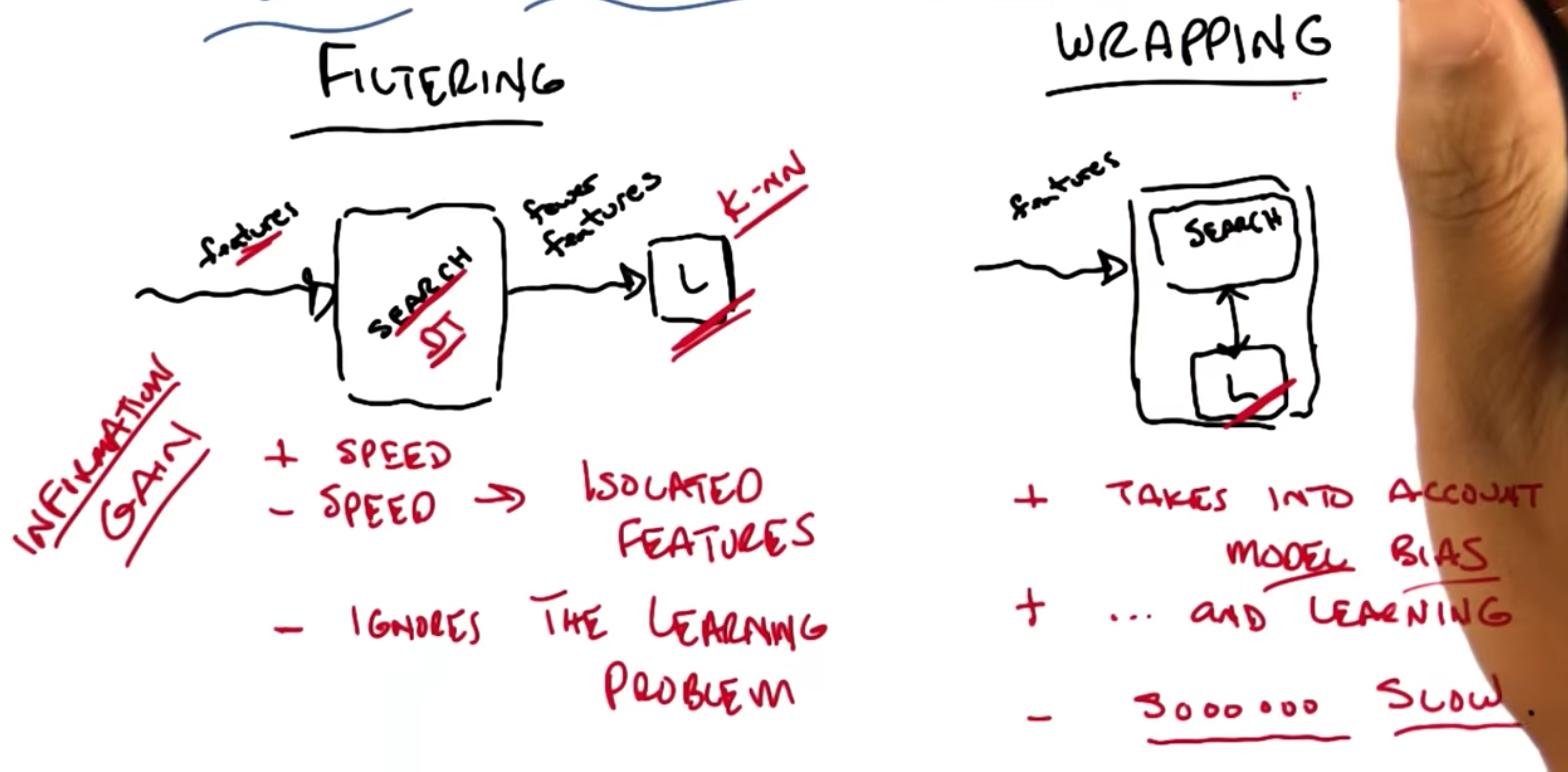 FILTERING
features
SEARCH
DT
fewer
features
L
K-NN
INFIRMATION
GAIN
+ SPEED
- SPEED → ISOLATED
FEATURES
- IGNORES THE LEARNING
PROBLEM
WRAPPING
features
SEARCH
L
+ TAKES INTO ACCOUNT
MODEL BIAS
+ ... AND LEARNING
- Sooooooo SLOW.